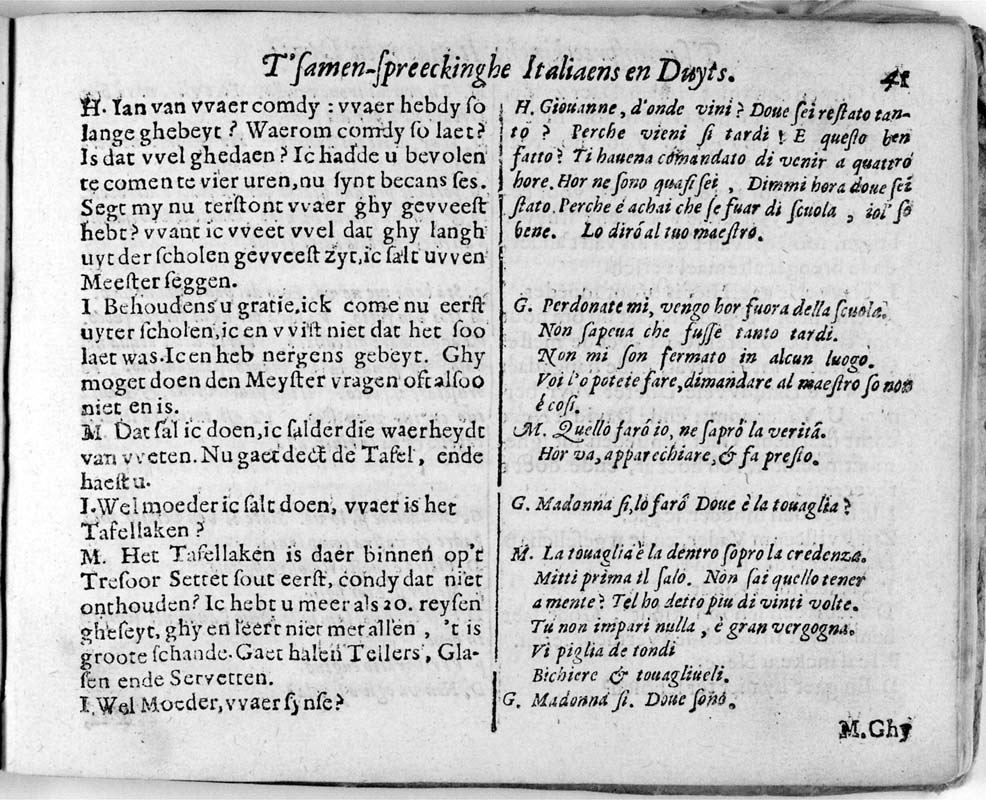 T'samen-spreeckinghe Italiaens en Duyts.
41
H. Ian van vvaer comdy : vvaer hebdy so
lange ghebeyt ? Waerom comdy so laet?
Is dat vvel ghedaen ? Ic hadde u bevolen
te comen te vier uren, nu synt becans ses.
Segt my nu terstont vvaer ghy gevveest
hebt? vvant ic vveet vvel dat ghy langh
uyt der scholen gevveest zyt, ic salt uvven
Meester seggen.
I. Behoudens u gratie, ick come nu eerst
uyter scholen, ic en vvist niet dat het soo
laet was. Ic en heb nergens gebeyt. Ghy
moget doen den Meyster vragen oft alsoo
niet en is.
M. Dat sal ic doen, ic salder die waerheydt
van vveten. Nu gaet dect de Tafel, ende
haest u.
I. Wel moeder ic salt doen, vvaer is het
Tafellaken ?
M. Het Tafellaken is daer binnen op't
Tresoor Settet sout eerst, condy dat niet
onthouden? Ic hebt u meer als 20. reysen
gheseyt, ghy en leert niet met allen, 't is
groote schande. Gaet halen Tellers, Gla-
sen ende Servetten.
I. Wel Moeder, vvaer synse?
H. Giouanne, d'onde vini? Doue sei restato tan-
to ? Perche vieni si tardi ? E questo ben
fatto? Ti haueua comandato di venir a quattro
hore. Hor ne sono quasi sei, Dimmi hora doue sei
stato. Perche é achai che se fuar di scuola, iol' so
bene. Lo diró al tuo maestro.
G. Perdonate mi, vengo hor fuora della scuola.
Non sapeua che fusse tanto tardi.
Non mi son fermato in alcun luogo.
Voi l'o potete fare, dimandare al maestro so non
é cosi.
M. Quello faró io, ne sapró la veritá.
Hor va, apparechiare, & fa presto.
G. Madonna si, lo faró Doue è la touaglia?
M. La touaglia è la dentro sopro la credenza.
Mitti prima il salo. Non sai quello tener
a mente? Tel ho detto piu di vinti volte.
Tu non impari nulla, è gran vergogna.
Vi piglia de tondi
Bichiere & touagliueli.
G. Madonna si. Doue sono.
M. Ghy